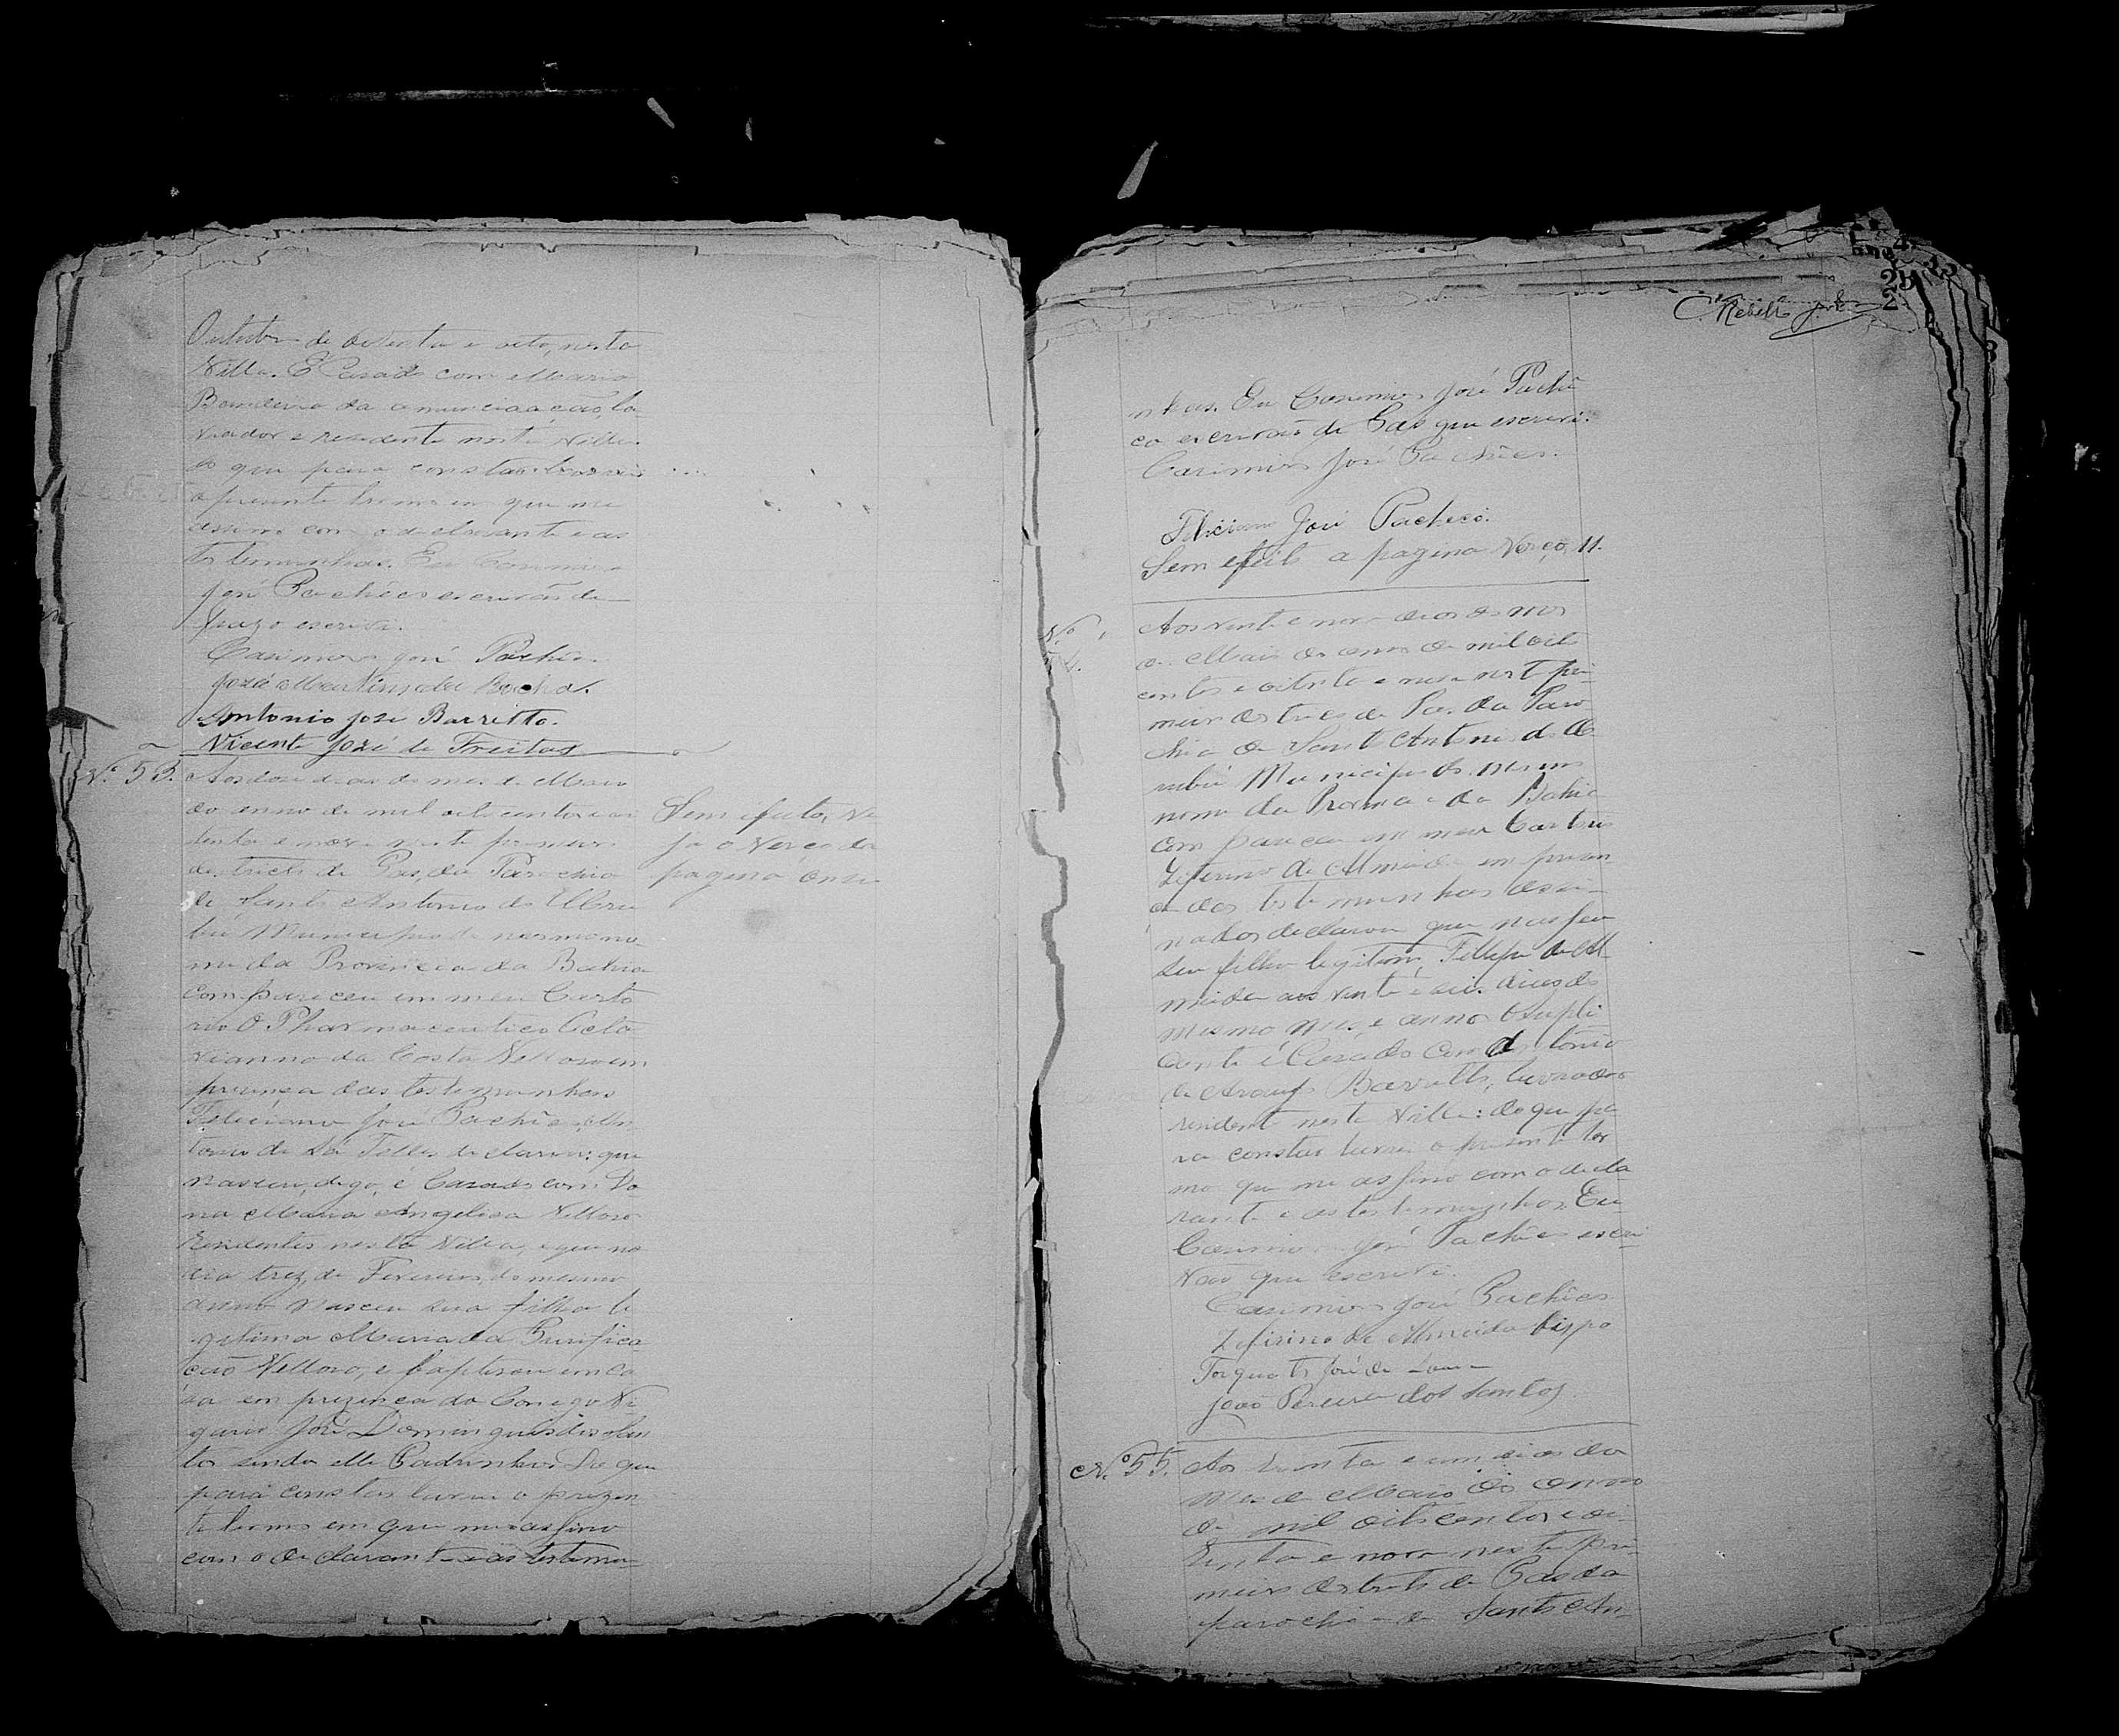 Outubro de oitenta e oito, nesta
Villa. É Casado com Maria
Bandeira da Annunciaação, la
vrador e residente nesta Villa.
do que para constar lavrei
o presente termo em que me
assino com o declarante e as
testemunhas. Eu Casimiro
José Pachêco escrivão de
paz o escrevi.
Casimiro José Pachêco
José Martins da Rocha.
Antonio José Barretto.
Vicente José de Freitas
Nº 53. Aos doze dias do mes de Maio
do anno de mil oito centos e oi
tenta e nove neste primeiro
destricto de Paz, da Parochia
de Santo Antonio do
Municipio do mesmo no
me da Provincia da Bahia
compareceu em meu Carto
rio O Pharmaceutico Octa
vianno da Costa Velloso em
prezença das testemunhas
Feliciano José Pachêco e An
tonio de Sá Telles declarou: que
nasceu, digo, é Casado com Do
na Maria Angelica Velloso
Residentes nesta Villa, e que no
dia trez, de Fevereiro do mesmo
anno nasceu sua filha le
gitima Maria da Purifica
ção Velloso, e baptisou em ca
sa em prezença do Conego Vi
gario José Domingues dos San
tos sendo elle Padrinho. Do que
para constar lavrei o prezen
te termo em que me assino
com o declarante e as testemu-
Sem efeito, Ve
ja o Verço da
pagina onze
C. Rebello
nhas. Eu Casimiro José Pachê
co escrivão de Paz que escrevi.
Casimiro José Pachêco.
Feliciano José Pacheco.
Sem efeito a pagina Verço, 11.
Nº
54.
Aos vinte e nove dias do mes
de Maio do anno de mil oito
centos e oitenta e nove neste pri-
meiro destricto de Paz da Paro
chia de Santo Antonio do
Municipio do mesmo
nome da Provincia da Bahia
compareceu em meu Cartorio
Zeferino de Almeida em prezen
ça das testemunhas assi-
nados declarou que nasceu
seu filho legitimo, Fellipe de Al-
meida aos vinte e seis dias do
mesmo mes, e anno O supli
cante é Casado com Antonia
de Araujo Barretto, lavrador
residente nesta Villa: do que pa
ra constar lavrei o presente ter
mo que me assino com o decla
rante e as testemunhas. Eu
Casimiro José Pachêco escri
vão que escrevi.
Casimiro José Pachêco
Zefirino de Almeida bispo
Torquato José de
João Pereira dos Santos.
Nº 55. Aos trinta e um dias do
mes de Maio do anno
de mil oitocentos e oi-
tenta e nove neste pri-
meiro destricto de Paz da
parochia de Santo An-